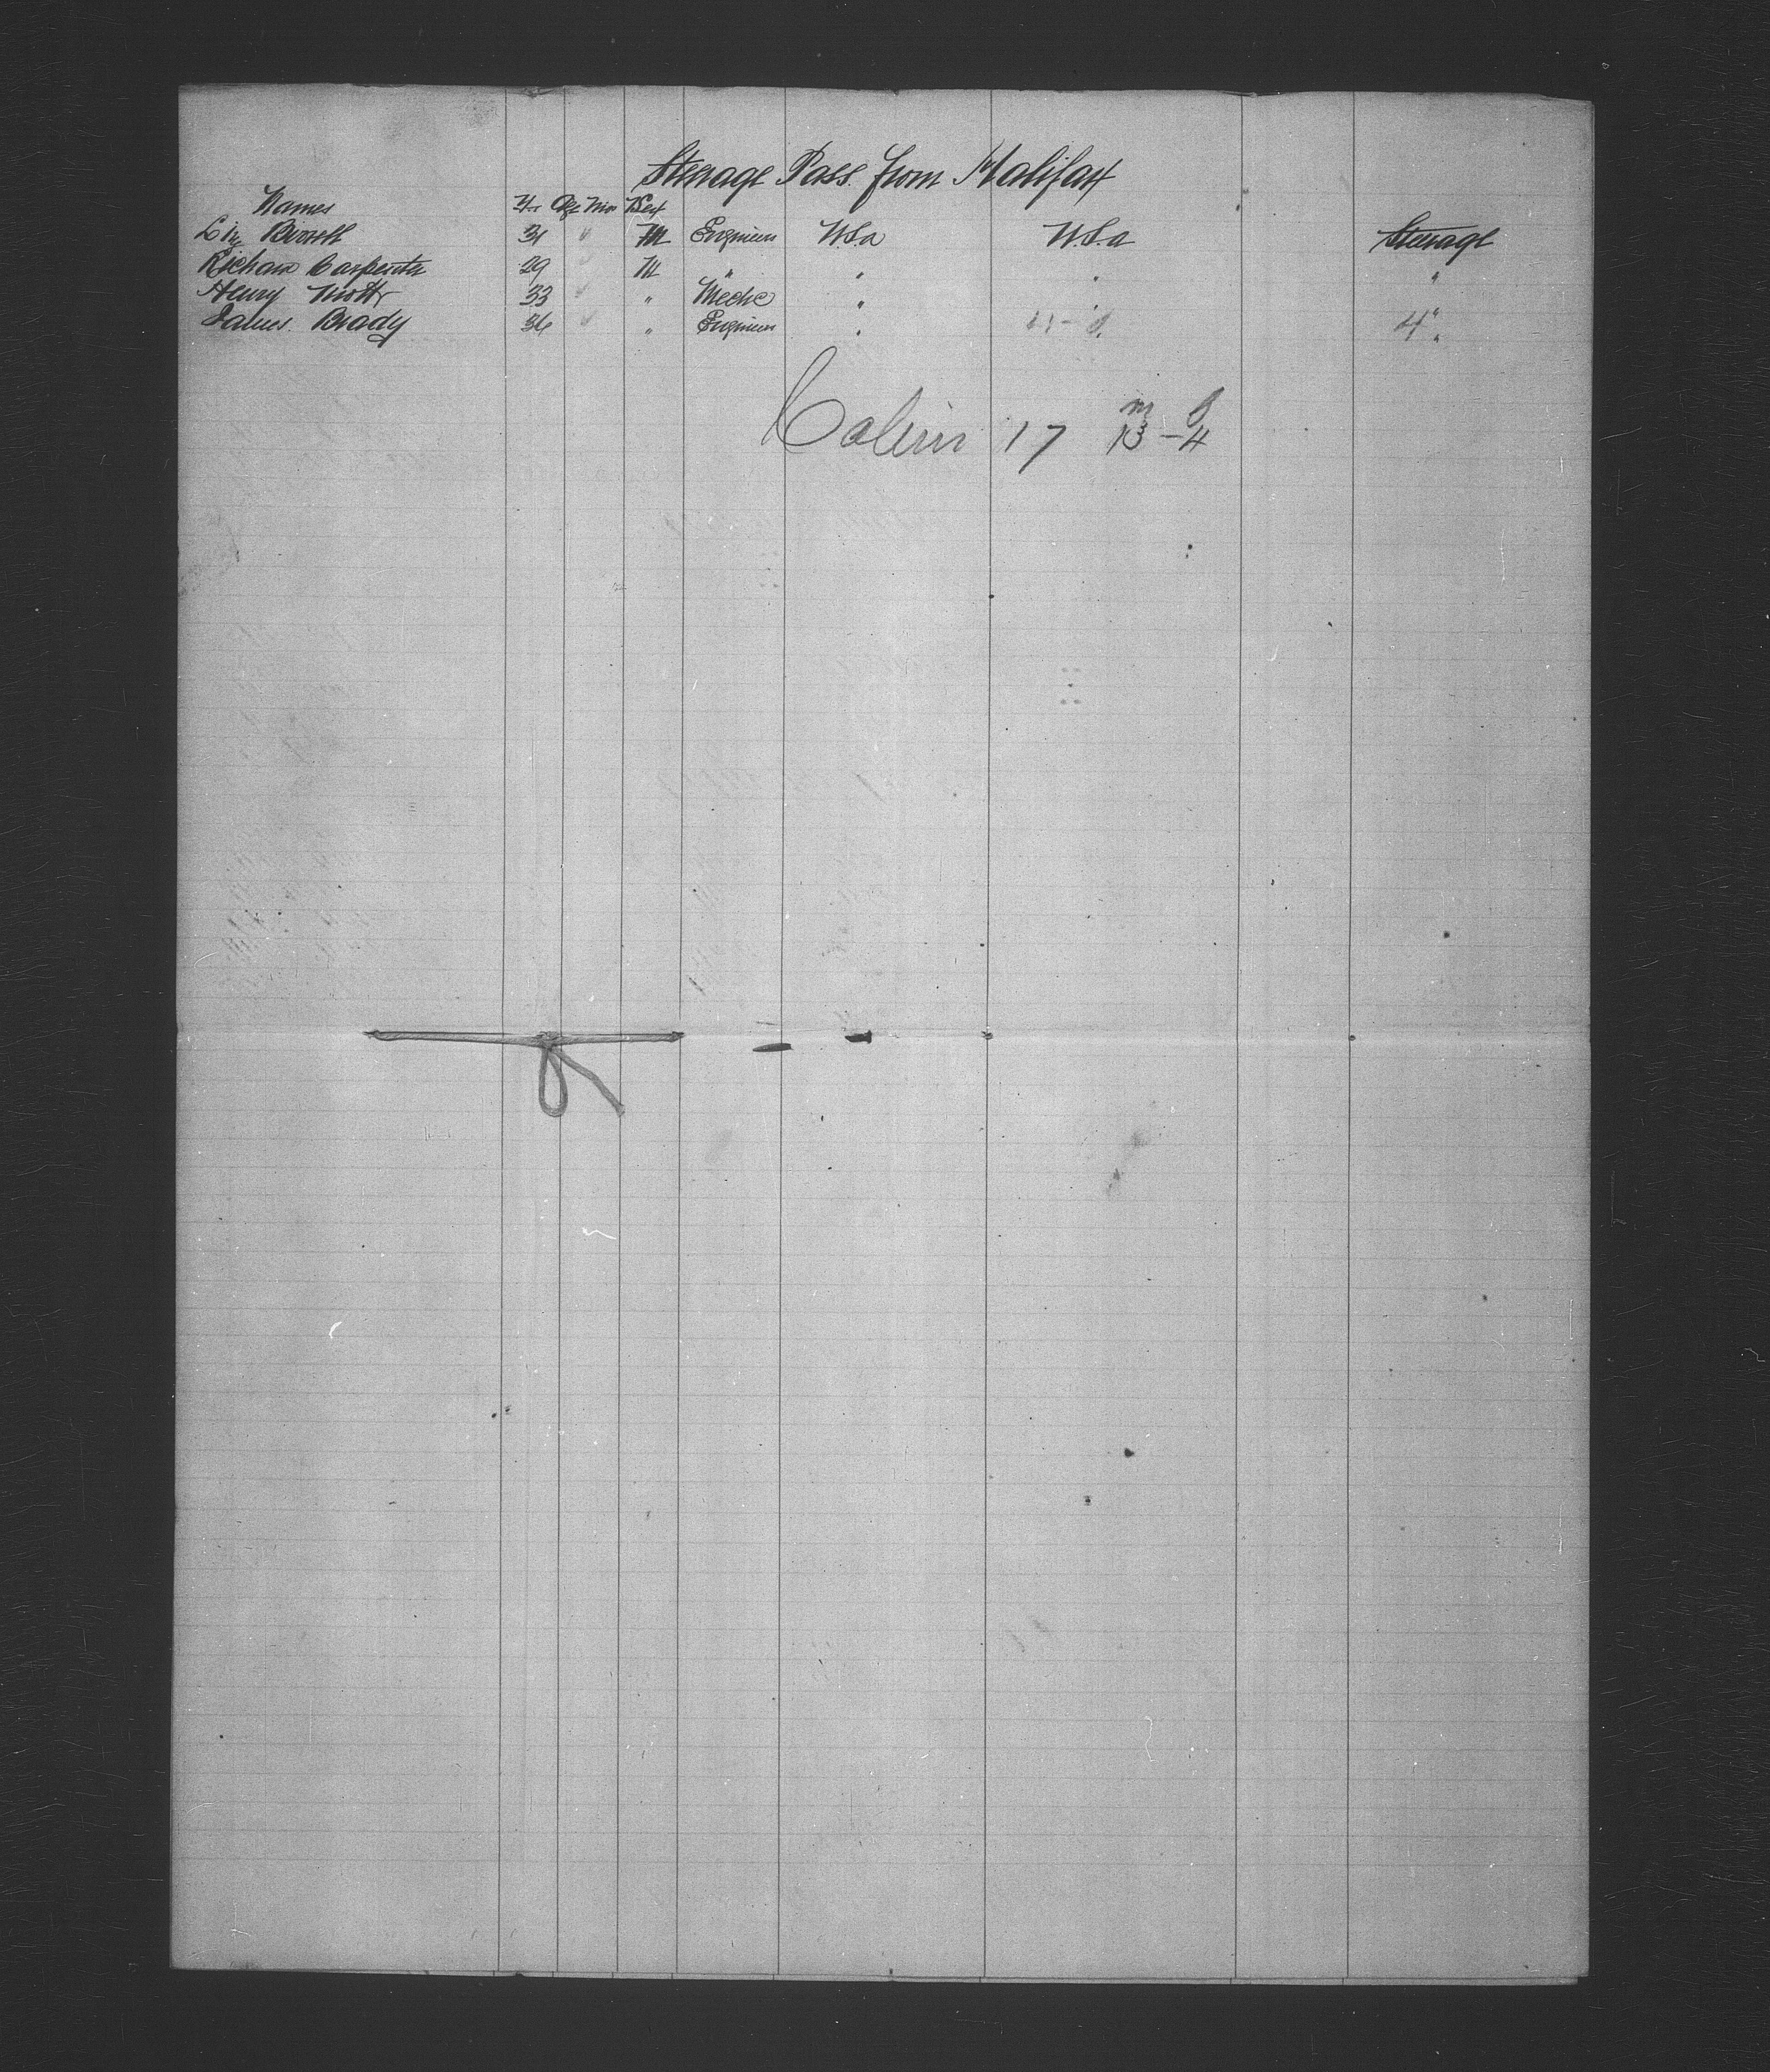 Steerage Pass. from Halifax
Names Yrs Age Mos Sex
31 " M Engineer U.S.a U.S.a Steerage
Richard Carpenter 29 " M " " " "
Henry Mott 33 " " Mechc " " "
James Brady 36 " " Engineer " " "
4
Cabin 17 13-4